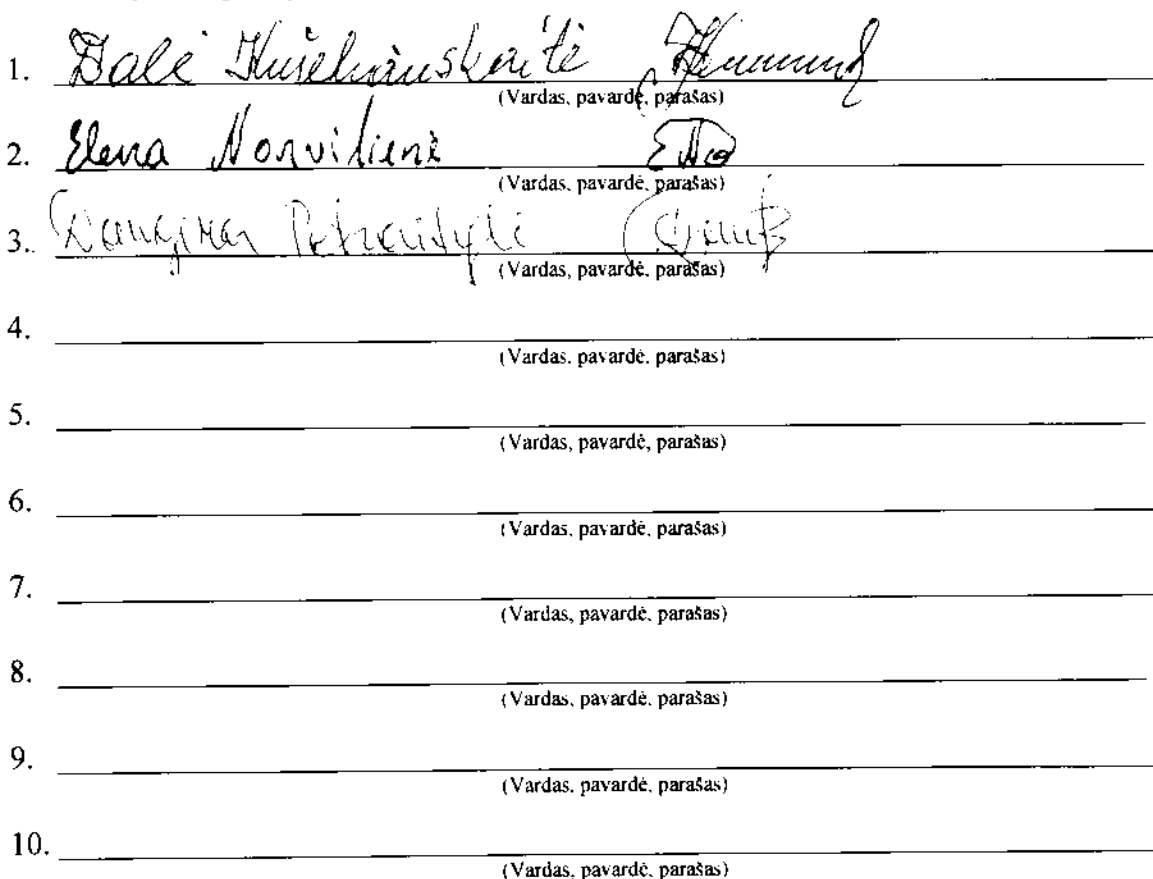 1. Dalė
(Vardas, pavardė, parašas)
2. Elena Norvilienė
(Vardas, pavardė, parašas)
3. Petraitytė
(Vardas, pavardė, parašas)
4.
(Vardas, pavardė, parašas)
5.
(Vardas, pavardė, parašas)
6.
(Vardas, pavardė, parašas)
7.
(Vardas, pavardė, parašas)
8.
(Vardas, pavardė, parašas)
9.
(Vardas, pavardė, parašas)
10.
(Vardas, pavardė, parašas)